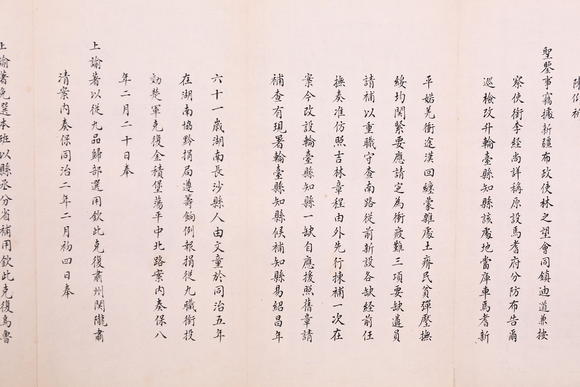 聖鑒事竊據新疆布政使林之望會同鎮迪道兼按
察使銜李經尚詳稱原設焉耆府分防布告爾
巡檢改升輪臺縣知縣該處地當庫車焉耆新
平婼羌衝途漢回纏蒙雜處土瘠民貧彈壓撫
綏均關緊要應請定為衝疲難三項要缺遴員
請補以重職守查南路從前新設各缺經前任
撫奏准仿照吉林章程由外先行揀補一次在
案今改設輪臺縣知縣一缺自應援照舊章請
補查有現署輪臺縣知縣候補知縣易紹昌年
六十一歲湖南長沙縣人由文童於同治五年
在湖南協黔捐局遵籌餉例報捐從九職銜投
効楚軍克復金積堡蕩平中北路案內奏保八
年二月二十日奉
上諭著以從九品歸部選用欽此克復肅州關隴肅
清案內奏保同治二年二月初四日奉
上諭著免選本班以縣丞分省補用欽此克復烏魯